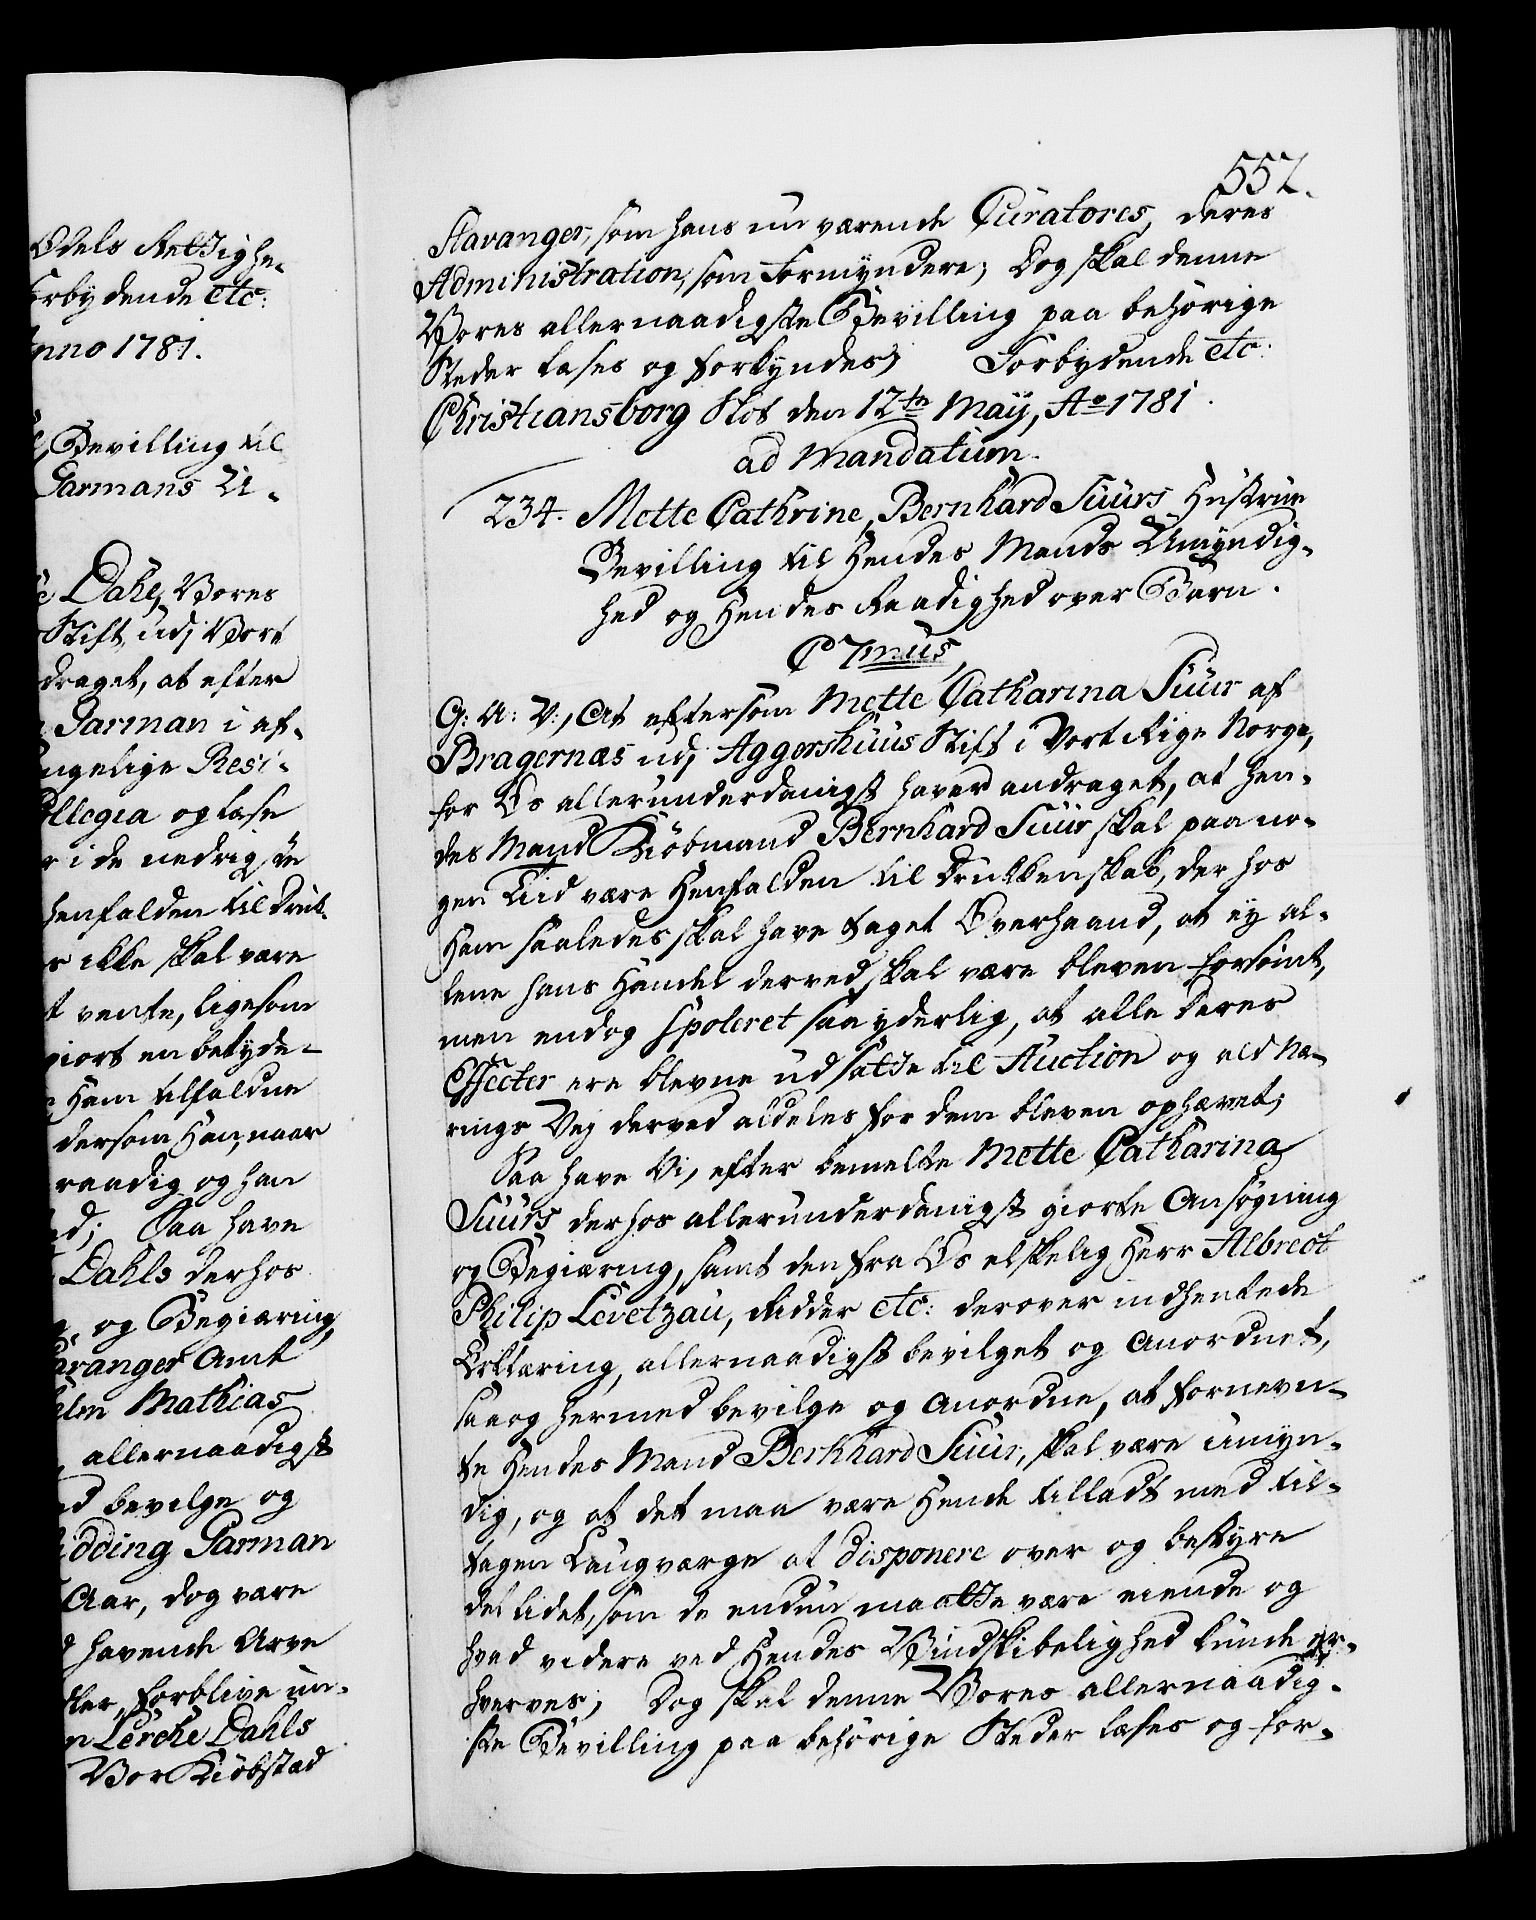 Odels Rettighe-
forbydende etc:
Anno 1781.
Bevilling til
Garmans U-
Dahl, Vores
Stift udj Vort
draget, at efter
Garman i af-
ngelige Resi-
llegia og lase
r i de nedrigste
henfalden til Druk-
r ikke skal være
t vente, ligesom
giort en betyde-
Ham tilfaldne
dersom Han, naar
raadig og han
d; Saa have
Dahls derhos
og Begiæring,
avanger Amt
elm Mathias
allernaadigst
ed bevilge og
idding Garman
Aar, dog være
d havende Arve
ller, forblive un-
n Lerche Dahls
Vor Kiöbstad
557.
Stavanger, som hans nu værende Curatores, deres
Administration, som Formyndere; Dog skal denne
Vores allernaadigste Bevilling paa behörige
Steder læses og forkyndes, Forbydende etc:
Christiansborg Slot den 12te May, Ao 1781.
ad Mandatum.
234. Mette Cathrine, Bernhard Suurs Hustrue
Bevilling til Hendes Mands Umyndig-
hed og Hendes Raadighed over Börn.
C 7mus,
G: A: V:, At eftersom Mette Catharina Suur af
Bragernæs udj Aggershuus Stift i Vort Rige Norge,
for Os allerunderdanigst haver andraget, at hen-
des Mand Kiöbmand Bernhard Suur skal paa no-
gen Tiid være Henfalden til Drukkenskab, der hos
Ham saaledes skal have taget Overhaand, at ey al-
lene hans Handel derved skal være bleven forsömt,
men endog spoleret saa yderlig, at alle deres
Effecter ere blevne udsatte til Auction og ald Næ-
rings Vej derved aldeles for dem bleven ophævet;
Saa have Vi, efter bemelte Mette Catharina
Suurs derhos allerunderdanigst giorte Ansögning
og Begiæring, samt den fra Os elskelig Herr Albrect
Philip Levetzau, Ridder etc: derover indhentede
Erklæring, allernaadigst bevilget og Anordnet,
saa og hermed bevilge og Anordne, at fornevn-
te Hendes Mand Berhhard Suur, skal være umyn-
dig, og at det maa være Hende tilladt med til-
tagen Laugværge at disponere over og bestyre
det lidet, som de endnu maatte være eiende og
hvad videre ved Hendes Vindskibelighed kunde er-
hverves; Dog skal denne Vores allernaadig-
ste Bevilling paa behörige Steder læses og for-